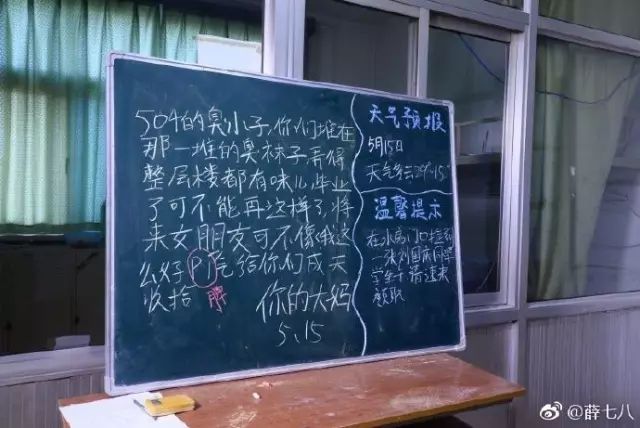 504的臭小子,你们堆在
那一堆的臭袜子弄得
整层楼都有味儿,毕业
了可不能再这样了,将
来女朋友可不像我这
么好PI气给你们成天
收拾
脾
你的大妈
5.15
天气预报
5月15日
天气多云29°~15°
温馨提示
在水房门口捡到
一张刘国庆同学
学生卡 请速来
领取
@薛七八